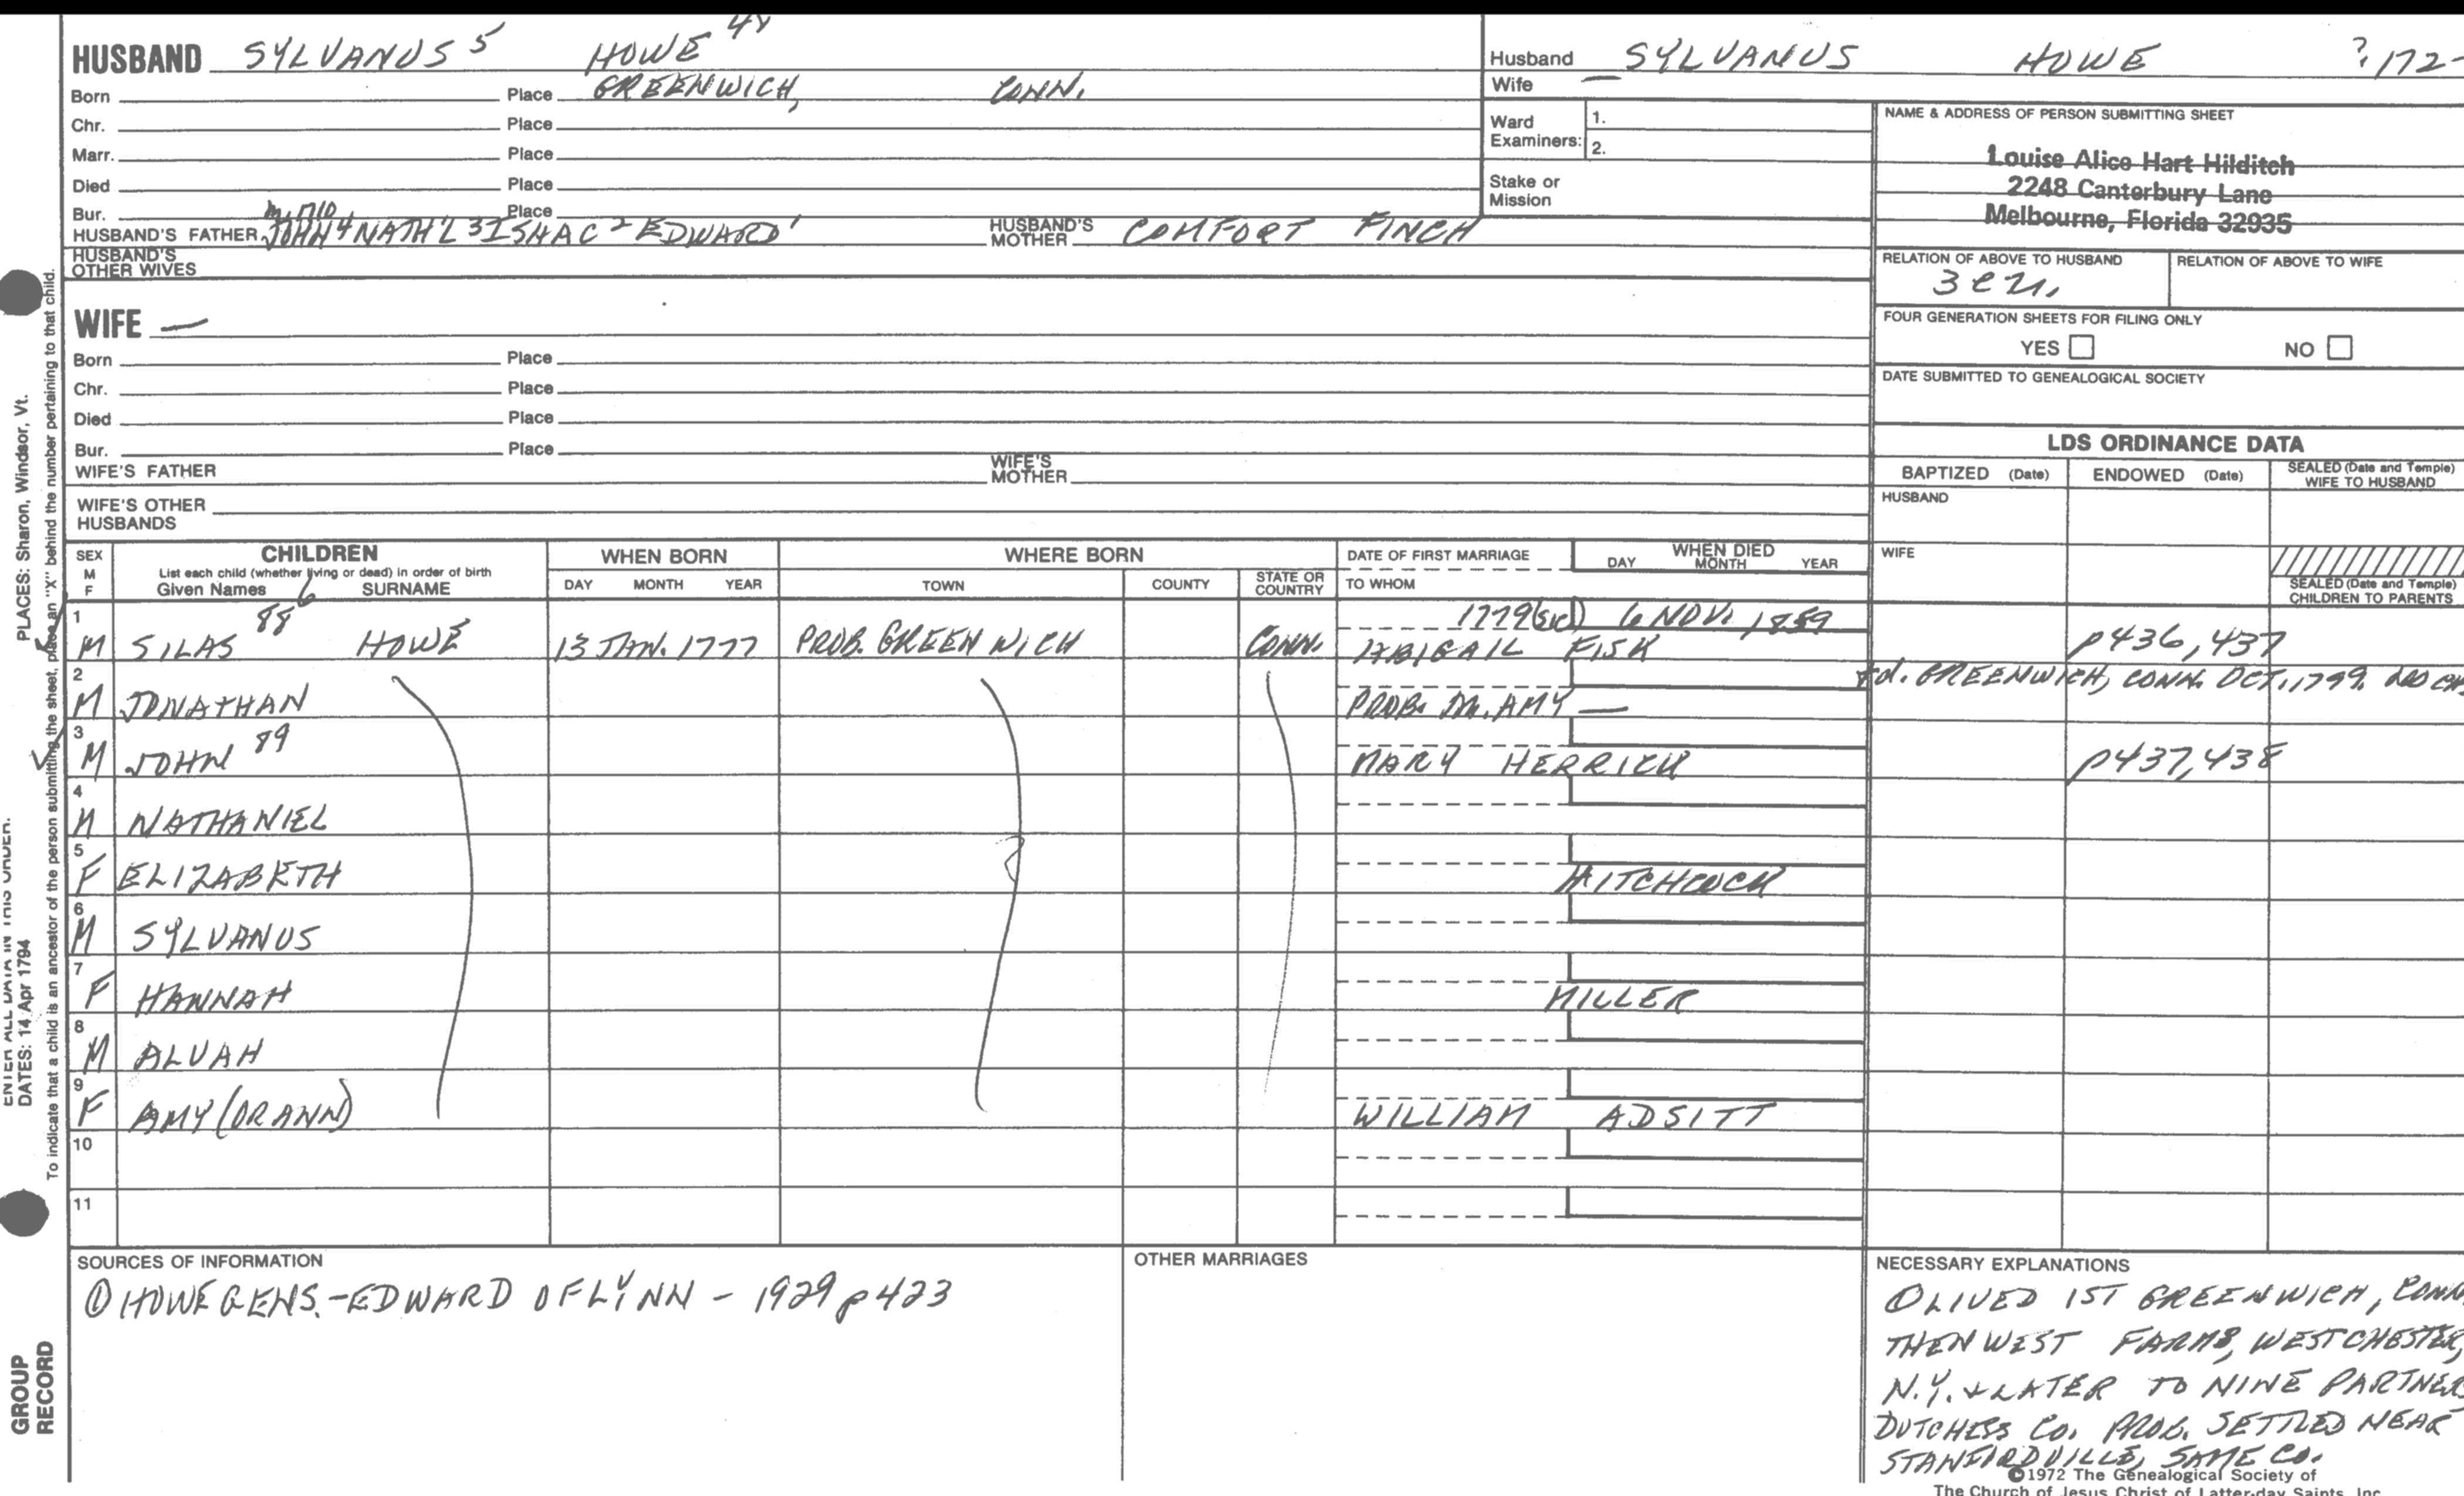 HUSBAND SYLVANUS 5 HOWE 44
Born Place GREENWICH, CONN.
Chr. Place
Marr. Place
Died Place
Bur. Place
m. 1710
HUSBAND'S FATHER JOHN 4 NATH'L 3 ISHAC 2 EDWARD 1 HUSBAND'S MOTHER COMFORT FINCH
HUSBAND'S OTHER WIVES
WIFE —
Born Place
Chr. Place
Died Place
Bur. Place
WIFE'S FATHER WIFE'S MOTHER
WIFE'S OTHER HUSBANDS
Husband SYLVANUS HOWE ?172-
Wife —
Ward Examiners: 1.
2.
Stake or Mission
NAME & ADDRESS OF PERSON SUBMITTING SHEET
Louise Alice Hart Hilditch
2248 Canterbury Lane
Melbourne, Florida 32935
RELATION OF ABOVE TO HUSBAND RELATION OF ABOVE TO WIFE
FOUR GENERATION SHEETS FOR FILING ONLY
YES NO
DATE SUBMITTED TO GENEALOGICAL SOCIETY
LDS ORDINANCE DATA
BAPTIZED (Date) ENDOWED (Date) SEALED (Date and Temple) WIFE TO HUSBAND
HUSBAND
WIFE
SEALED (Date and Temple) CHILDREN TO PARENTS
SEX M F CHILDREN WHEN BORN WHERE BORN DATE OF FIRST MARRIAGE WHEN DIED
List each child (whether living or dead) in order of birth
Given Names SURNAME DAY MONTH YEAR TOWN COUNTY STATE OR COUNTRY TO WHOM DAY MONTH YEAR
1 88 6 1779 (sic) 6 NOV. 1859
M SILAS HOWE 13 JAN. 1777 PROB. GREENWICH CONN. ABIGAIL FISK p436, 437
2 d. GREENWICH, CONN. OCT. 1799.
M JONATHAN PROB. M. AMY —
3
M JOHN 89 MARY HERRICK p437, 438
4
M NATHANIEL
5
F ELIZABETH HITCHCOCK
6
M SYLVANUS
7
F HANNAH MILLER
8
M ALVAH
9
F AMY (OR ANN) WILLIAM ADSITT
10
11
SOURCES OF INFORMATION
① HOWE GENS. - EDWARD OF LYNN - 1929 p423
OTHER MARRIAGES
NECESSARY EXPLANATIONS
① LIVED 1ST GREENWICH, CONN
THEN WEST FARMS, WESTCHESTER,
N.Y. & LATER TO NINE PARTNERS
DUTCHESS CO. PROB. SETTLED NEAR
STANFORDVILLE, SAME CO.
©1972 The Genealogical Society of
The Church of Jesus Christ of Latter-day Saints, Inc.
PLACES: Sharon, Windsor, Vt.
To indicate that a child is an ancestor of the person submitting the sheet, place an "X" behind the number pertaining to that child.
ENTER ALL DATA IN THIS ORDER:
DATES: 14 Apr 1794
GROUP RECORD